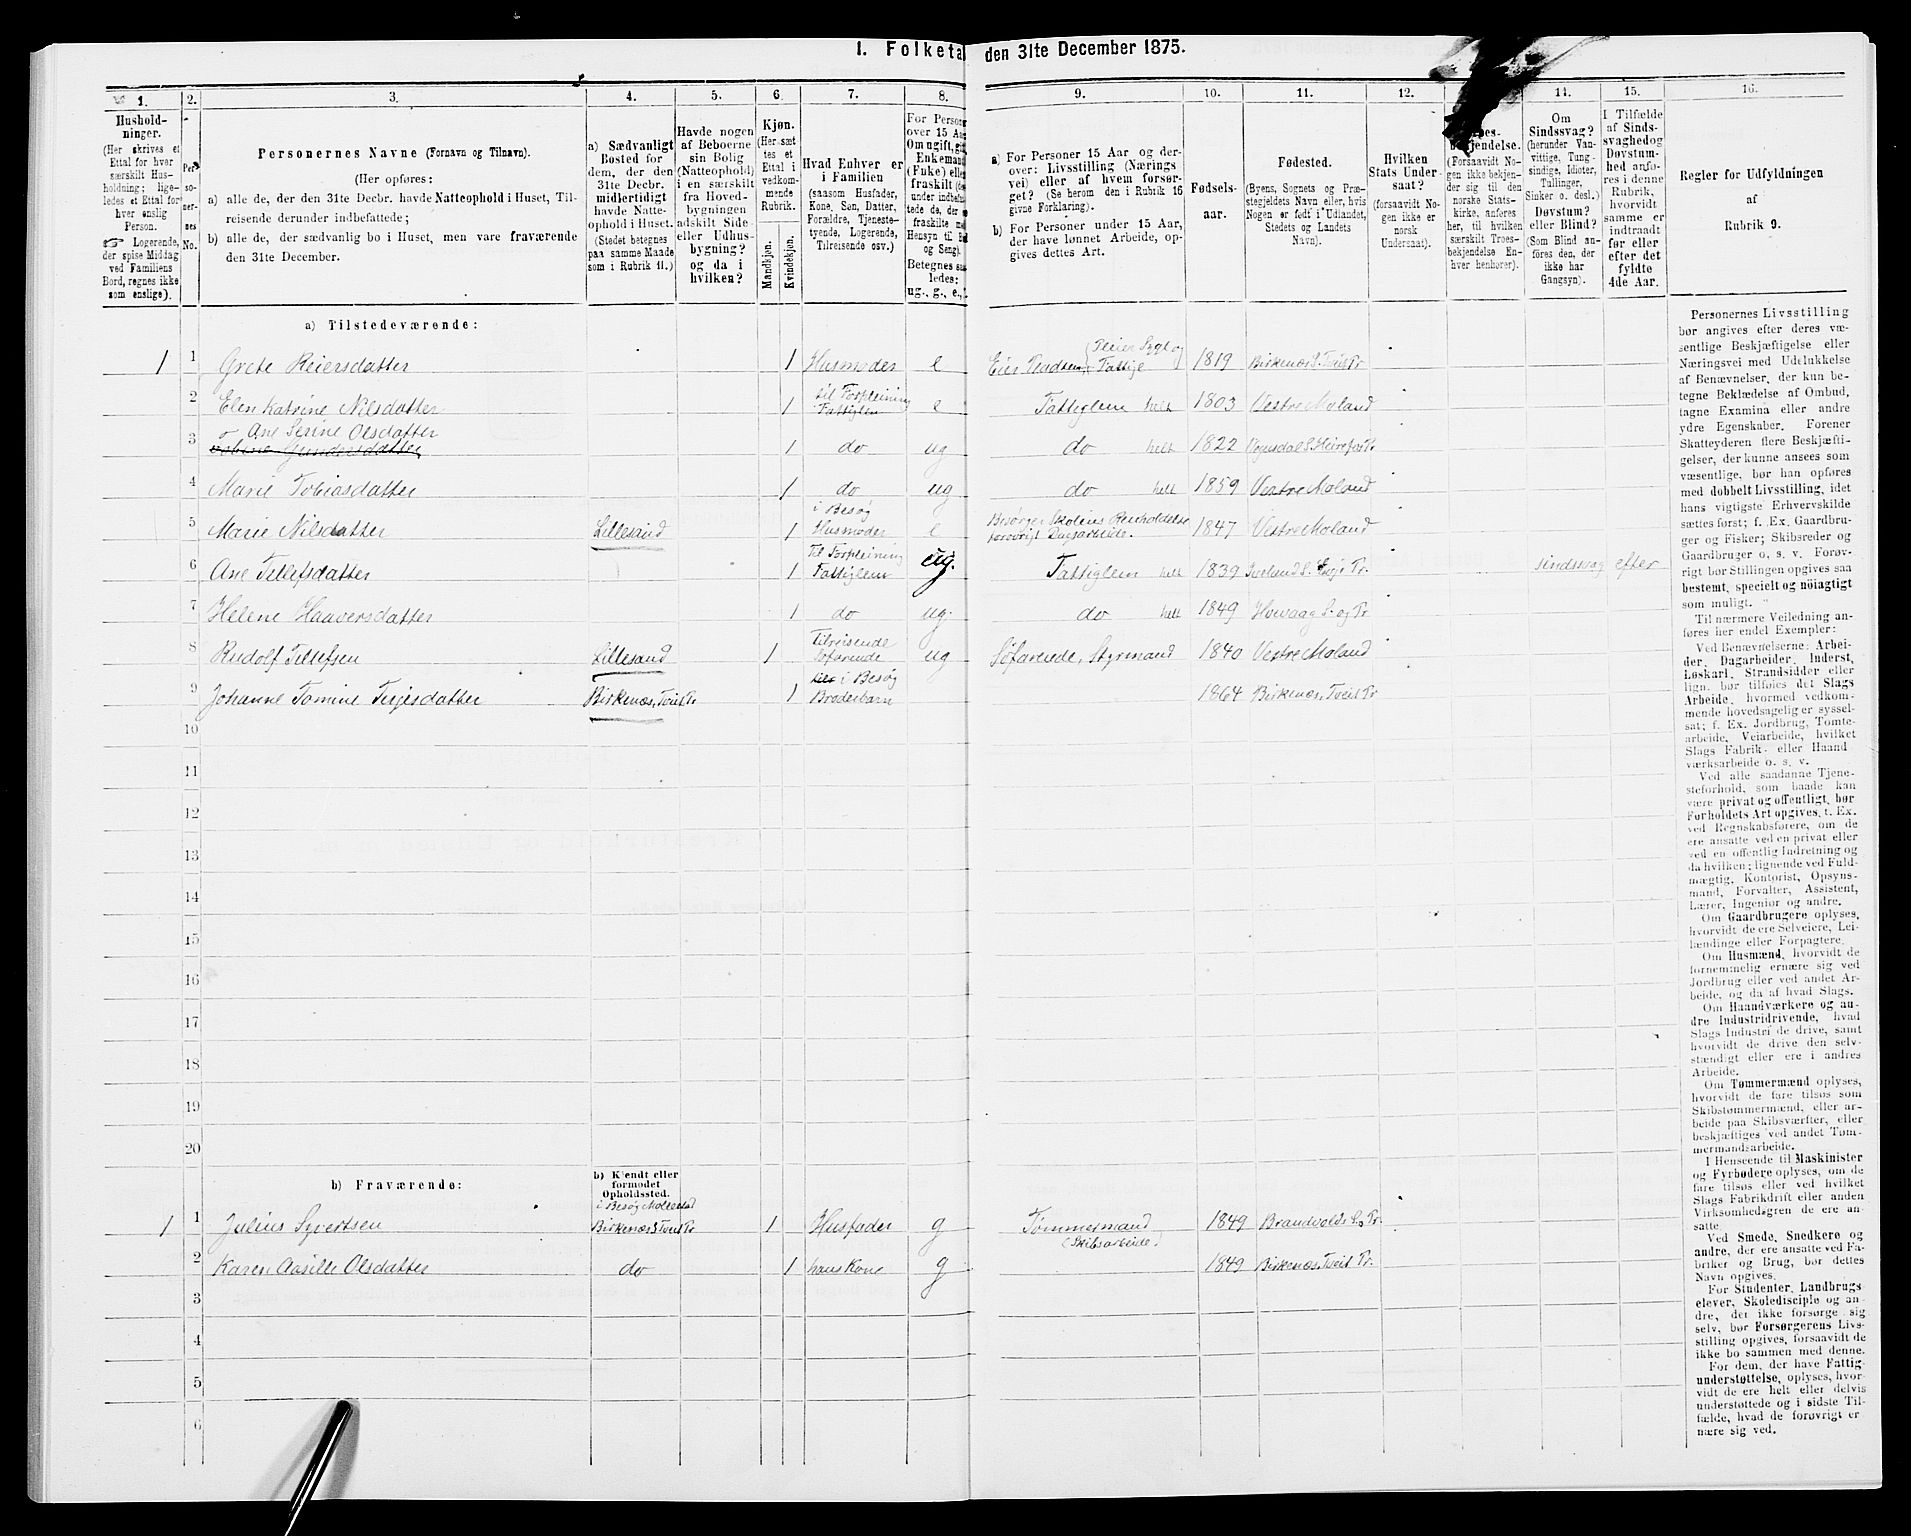 1. Folketal den 31te December 1875.
1. 2. 3. 4. 5. 6. 7. 8. 9. 10. 11. 12. 14. 15. 16.
Hushold-
ninger.
(Her skrives et
Ettal for hver
særskilt Hus-
holdning; lige-
ledes et Ettal for
hver enslig
Person.
☞ Logerende,
der spise Middag
ved Familiens
Bord, regnes ikke
som enslige).
Per-
so-
ner-
nes
No.
Personernes Navne (Fornavn og Tilnavn).
(Her opføres:
a) alle de, der den 31te Decbr. havde Natteophold i Huset, Til-
reisende derunder indbefattede;
b) alle de, der sædvanlig bo i Huset, men vare fraværende
den 31te December.
a) Sædvanligt
Bosted for
dem, der den
31te Decbr.
midlertidigt
havde Natte-
ophold i Huset.
(Stedet betegnes
paa samme Maade
som i Rubrik 11.)
Havde nogen
af Beboerne
sin Bolig
(Natteophold)
i en særskilt
fra Hoved-
bygningen
adskilt Side-
eller Udhus-
bygning?
og da i
hvilken?
Kjøn.
(Her sæt-
tes et
Ettal i
vedkom-
mende
Rubrik.
Mandskjøn.
Kvindekjøn.
Hvad Enhver er
i Familien
(saasom Husfader,
Kone, Søn, Datter,
Forældre, Tjeneste-
tyende, Logerende,
Tilreisende osv.)
For Person
over 15 Aa
Om ugift, gi
Enkemand
(Fuke) elle
fraskilt (de
under indbefat-
tede de, der
fraskilte m
Hensyn til B
og Seng).
Betegnes saa
ledes:
ug., g., e.,
a) For Personer 15 Aar og der-
over: Livsstilling (Nærings
vei) eller af hvem forsør-
get? (Se herom den i Rubrik 16
givne Forklaring).
b) For Personer under 15 Aar,
der have lønnet Arbeide, op-
gives dettes Art.
Fødsels-
aar.
Fødested.
(Byens, Sognets og Præ-
stegjeldets Navn eller, hvis
Nogen er født i Udlandet,
Stedets og Landets
Navn).
Hvilken
Stats Under-
saat?
(forsaavidt No-
gen ikke er
norsk
Undersaat).
bekjendelse.
(Forsaavidt No-
gen ikke bekjen-
der sig til den
norske Stats-
kirke, anføres
her, til hvilken
særskilt Troes-
bekjendelse En-
hver henhører).
Om
Sindssvag?
(herunder Van-
vittige, Tung-
sindige, Idioter,
Tullinger,
Sinker o. desl.)
Døvstum?
eller Blind?
(Som Blind an-
føres den, der
ikke har
Gangsyn).
I Tilfælde
af Sinds-
svaghed og
Døvstum-
hed anfø-
res i denne
Rubrik,
hvorvidt
samme er
indtraadt
før eller
efter det
fyldte
4de Aar.
Regler for Udfyldningen
af
Rubrik 9.
a) Tilstedeværende:
1 1 Grete Reiersdatter 1 Husmoder e Pleier Syge og Fattige 1819 Birkenæs S. Tveit Pr
2 Elen Katrine Nilsdatter 1 til Forpleining Fattiglem e Fattiglem helt 1803 Vestre Moland
3 Ane Serine Olsdatter Gundersdatter 1 do ug do helt 1822 Vegusdal S. Pr
4 Marie Tobiasdatter 1 do ug do helt 1859 Vestre Moland
5 Marie Nilsdatter Lillesand 1 i Besøg Husmoder e Besørger Skolens Renholdelse forøvrigt Dagarbeide. 1847 Vestre Moland
6 Ane Tellefsdatter 1 Til Forpleining Fattiglem ug. Fattiglem helt 1839 Iveland S. Evje Pr. sindssvag efter
7 Helene Haaversdatter 1 do ug. do helt 1849 Høvaag S. og Pr
8 Rudolf Tellefsen Lillesand 1 Tilreisende Søfarende ug Søfarende, Styrmand 1840 Vestre Moland
9 Johanne Tomine Terjesdatter Birkenæs, Tveit Pr 1 i Besøg Broderbarn 1864 Birkenæs, Tveit Pr
10
11
12
13
14
15
16
17
18
19
20
b) Fraværende:
b) Kjendt eller
formodet
Opholdssted.
1 1 Julius Syvertsen i Besøg Mollestad Birkenæs S Tveit Pr 1 Husfader g Tømmermand (Skibsarbeide) 1849 Brandvolds S. Pr.
2 Karen Aasille Olsdatter do 1 hans Kone g 1849 Birkenæs, Tveit Pr.
3
4
5
6
Personernes Livsstilling
bør angives efter deres væ-
sentlige Beskjæftigelse eller
Næringsvei med Udelukkelse
af Benævnelser, der kun be-
tegne Beklædelse af Ombud,
tagne Examina eller andre
ydre Egenskaber. Forener
Skatteyderen flere Beskjæfti-
gelser, der kunne ansees som
væsentlige, bør han opføres
med dobbelt Livsstilling, idet
hans vigtigste Erhvervskilde
sættes først; f. Ex. Gaardbru-
ger og Fisker; Skibsreder og
Gaardbruger o. s. v. Forøv-
rigt bør Stillingen opgives saa
bestemt, specielt og nöiagtigt
som muligt.
Til nærmere Veiledning an-
føres her endel Exempler:
Ved Benævnelserne: Arbei-
der, Dagarbeider, Inderst,
Løskarl, Strandsidder eller
lign. bør tilføies det Slags
Arbeide, hvormed vedkom-
mende hovedsagelig er syssel-
sat; f. Ex. Jordbrug, Tomte-
arbeide, Veiarbeide, hvilket
Slags Fabrik- eller Haand
værksarbeide o. s. v.
Ved alle saadanne Tjene-
steforhold, som baade kan
være privat og offentligt, bør
Forholdets Art opgives, t. Ex.
ved Regnskabsførere, om de
ere ansatte ved en privat eller
ved en offentlig Indretning og
da hvilken; lignende ved Fuld-
mægtig, Kontorist, Opsyns-
mand, Forvalter, Assistent,
Lærer, Ingeniør og andre.
Om Gaardbrugere oplyses,
hvorvidt de ere Selveiere, Lei-
lændinge eller Forpagtere.
Om Husmænd, hvorvidt de
fornemmelig ernære sig ved
Jordbrug eller ved andet Ar-
beide, og da af hvad Slags.
Om Haandværkere og an-
dre Industridrivende, hvad
Slags Industri de drive, samt
hvorvidt de drive den selv-
stændigt eller ere i andres
Arbeide.
Om Tømmermænd oplyses,
hvorvidt de fare tilsøs som
Skibstømmermænd, eller ar-
beide paa Skibsværfter, eller
beskjæftiges ved andet Tøm-
mermandsarbeide.
I Henseende til Maskinister
og Fyrbødere oplyses, om de
fare tilsøs eller ved hvilket
Slags Fabrikdrift eller anden
Virksomhedsgren de ere an-
satte.
Ved Smede, Snedkere og
andre, der ere ansatte ved Fa-
briker og Brug, bør dettes
Navn opgives.
For Studenter, Landbrugs-
elever, Skoledisciple og an-
dre, der ikke forsørge sig
selv, bør Forsørgerens Livs-
stilling opgives, forsaavidt de
ikke bo sammen med denne.
For dem, der have Fattig-
understøttelse, oplyses, hvor-
vidt de ere helt eller delvis
understøttede og i sidste Til-
fælde, hvad de forøvrigt er
nære sig ved.